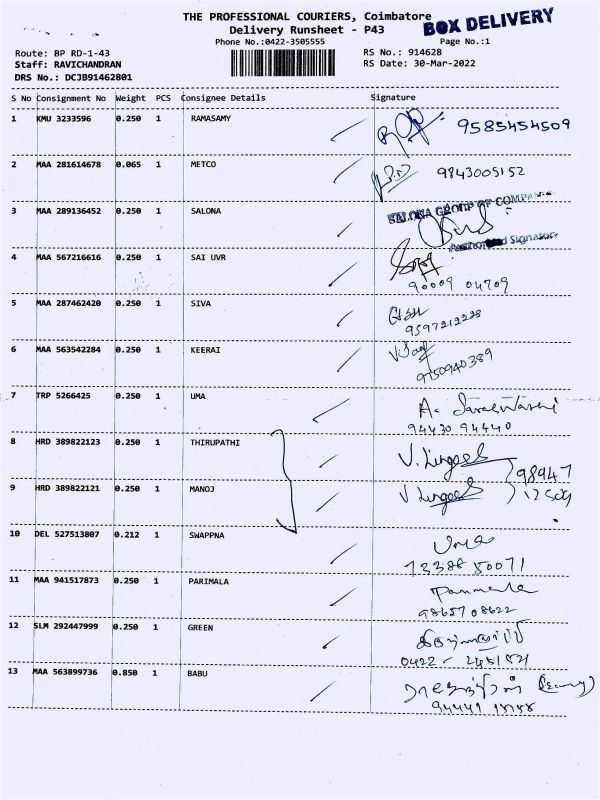 THE PROFESSIONAL COURIERS, Coimbatore
BOX DELIVERY
Delivery Runsheet - P43
Phone No.:0422-3505555
Page No.:1
Route: BP RD-1-43
RS No.: 914628
Staff: RAVICHANDRAN
RS Date: 30-Mar-2022
DRS No.: DCJB91462801
S No Consignment No Weight PCS Consignee Details Signature
1 KMU 3233596 0.250 1 RAMASAMY
9585454509
2 MAA 281614678 0.065 1 METCO
9843005152
3 MAA 289136452 0.250 1 SALONA
SALONA GROUP OF COMPANIES
Authorised Signatory
4 MAA 567216616 0.250 1 SAI UVR
90009 04709
5 MAA 287462420 0.250 1 SIVA
9597212228
6 MAA 563542284 0.250 1 KEERAI
Vijay
9150940389
7 TRP 5266425 0.250 1 UMA
A. Saraswathi
94430 94440
8 HRD 389822123 0.250 1 THIRUPATHI
V. Lingesh
98947
9 HRD 389822121 0.250 1 MANOJ
V Lingesh
12509
10 DEL 527513807 0.212 1 SWAPPNA
Uma
73388 50071
11 MAA 941517873 0.250 1 PARIMALA
Parimala
98657 08622
12 SLM 292447999 0.250 1 GREEN
0422 - 2451821
13 MAA 563899736 0.850 1 BABU
94441